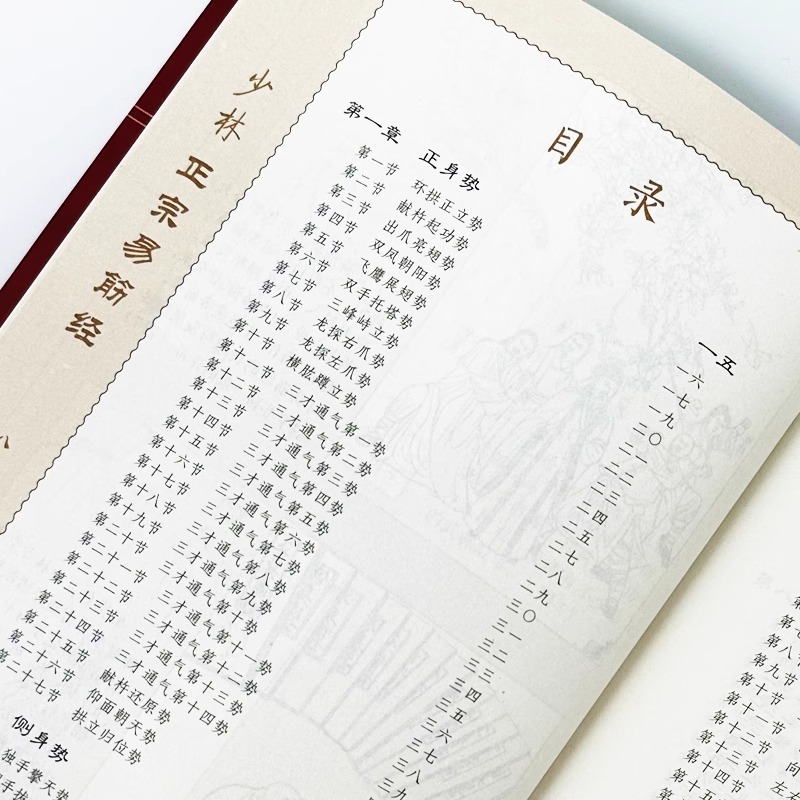 少林正宗易筋经
八
目录
第一章 正身势
第一节 环拱正立势
第二节 献杵起功势
第三节 出爪亮翅势
第四节 双凤朝阳势
第五节 飞鹰展翅势
第六节 双手托塔势
第七节 三峰峙立势
第八节 龙探右爪势
第九节 龙探左爪势
第十节 横肱蹲立势
第十一节 三才通气第一势
第十二节 三才通气第二势
第十三节 三才通气第三势
第十四节 三才通气第四势
第十五节 三才通气第五势
第十六节 三才通气第六势
第十七节 三才通气第七势
第十八节 三才通气第八势
第十九节 三才通气第九势
第二十节 三才通气第十势
第二十一节 三才通气第十一势
第二十二节 三才通气第十二势
第二十三节 三才通气第十三势
第二十四节 三才通气第十四势
第二十五节 献杵还原势
第二十六节 仰面朝天势
第二十七节 拱立归位势
侧身势
独手擎天势
一五
一六
一七
一九
二〇
二一
二二
二三
二四
二五
二七
二八
二九
三〇
三一
三二
三三
三四
三五
三六
三七
三八
三九
第八节
第九节
第十节
第十一节
第十二节
第十三节
第十四节
第十五节